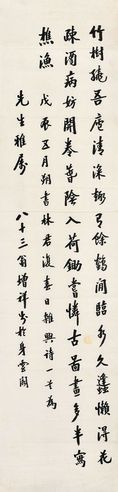 竹樹繞吾廬清深趣有餘鶴閒臨水久蜂懶得花
疎酒病妨開卷春陰入荷鋤嘗憐古圖畫多半寫
樵漁 戊辰五月朔書林君復春日雜興詩一首為
先生雅屬 八十三翁增祥書於身雲閣